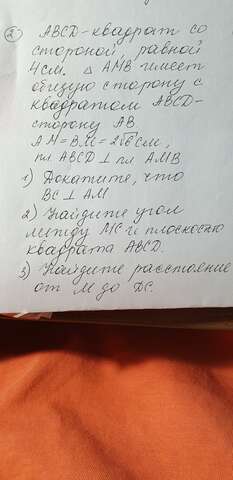 2) ABCD-квадрат со
стороной, равной
4 см. △ AMB имеет
общую сторону с
квадратом ABCD-
сторону AB
AM = BM = 2√6 см,
пл ABCD ⊥ пл AMB
1) Докажите, что
BC ⊥ AM
2) Найдите угол
между MC и плоскостью
квадрата ABCD.
3) Найдите расстояние
от M до DC.